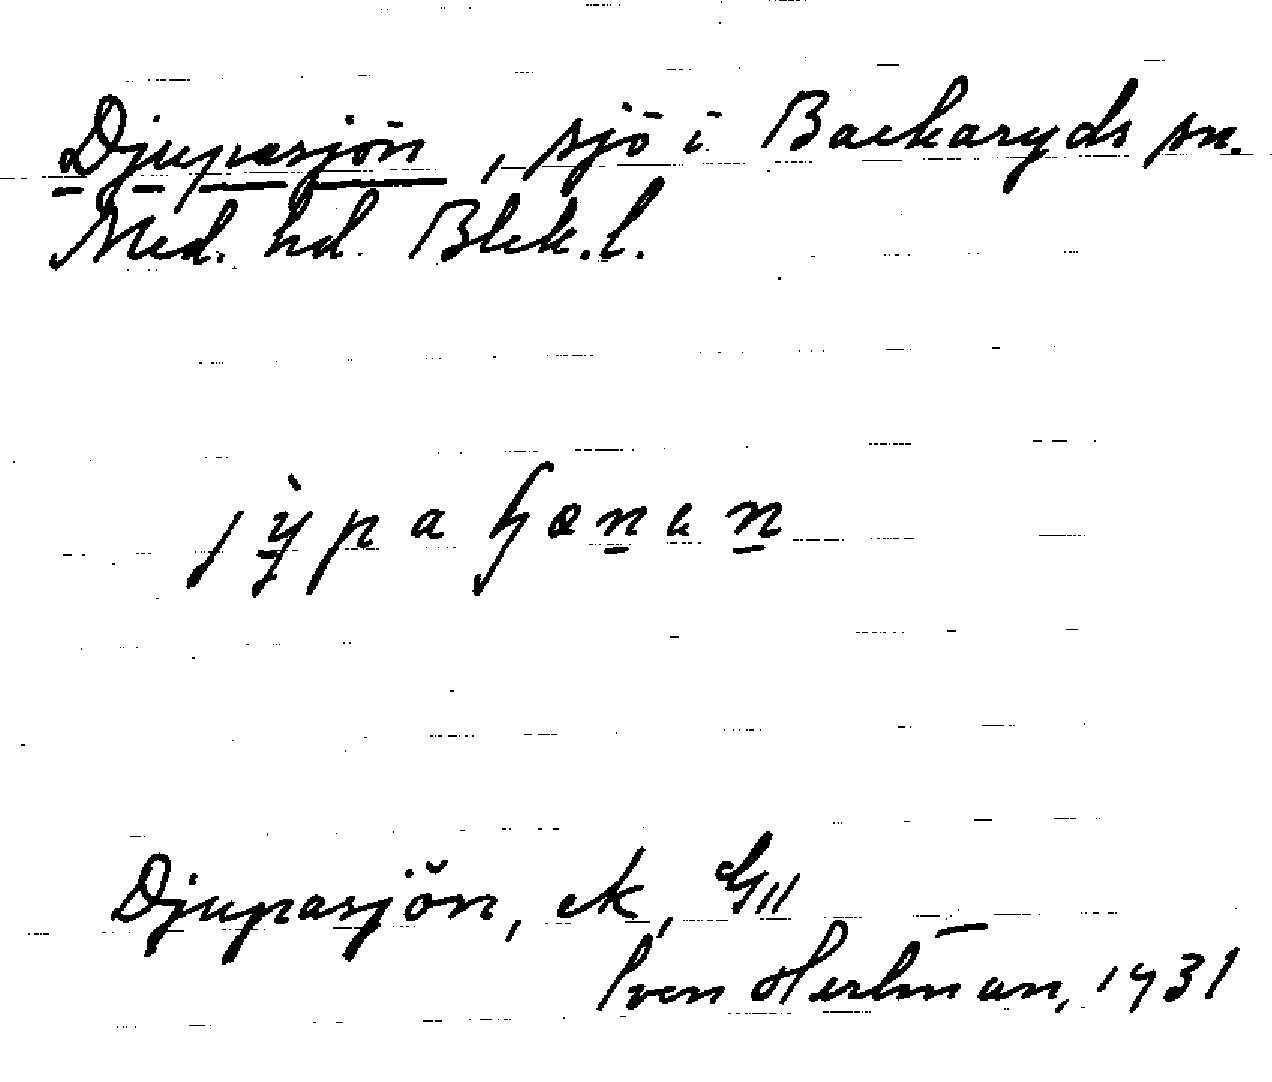 Djupasjön, sjö i Backaryds sn.
Med. hd. Blek.l.
Djupasjön, ek, GII
Sven Herlman, 1931